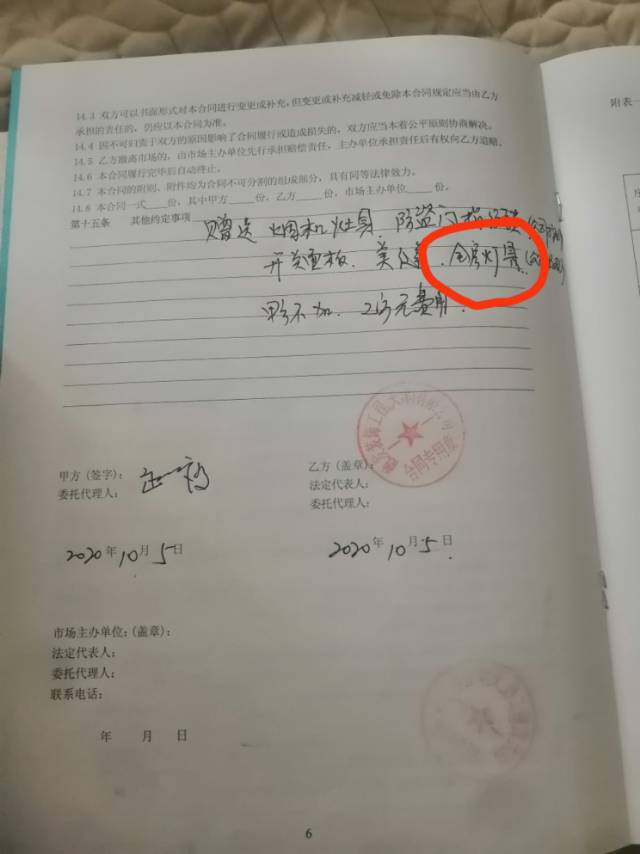 14.3 双方可以书面形式对本合同进行变更或补充,但变更或补充减轻或免除本合同规定应当由乙方
承担的责任的,仍应以本合同为准。
14.4 因不可归责于双方的原因影响了合同履行或造成损失的,双方应当本着公平原则协商解决。
14.5 乙方撤离市场的,由市场主办单位先行承担赔偿责任,主办单位承担责任后有权向乙方追赔。
14.6 本合同履行完毕后自动终止。
14.7 本合同的附则、附件均为合同不可分割的组成部分,具有同等法律效力。
14.8 本合同一式 份,其中甲方 份,乙方 份,市场主办单位 份。
第十五条 其他约定事项
赠送 烟机灶具 防盗门
开关面板 全房灯具
费用
甲方(签字):
委托代理人:
2020年10月5日
乙方(盖章):
法定代表人:
委托代理人:
2020年10月5日
合同专用章
市场主办单位:(盖章):
法定代表人:
委托代理人:
联系电话:
年 月 日
6
附表一